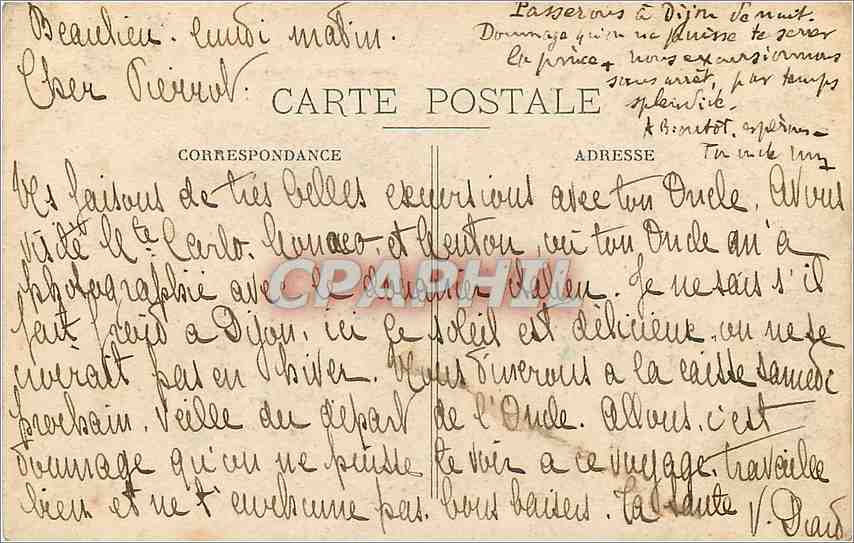 Beaulieu. lundi matin.
Cher Pierrot.
Passerons à Dijon de nuit.
Dommage qu'on ne puisse te serrer
la pince + nous excursionnons
sans arrêt, par temps
splendide.
A Bientôt, espérons-
Ton oncle
CARTE POSTALE
CORRESPONDANCE
ADRESSE
Ns faisons de très belles excursions avec ton Oncle. Avons
visité Mte Carlo. Monaco. et Menton, où ton Oncle m'a
photographié avec le douanier italien. Je ne sais s'il
fait froid a Dijon, ici le soleil est délicieux, on ne se
croirait pas en hiver. Nous dinerons a la caisse samedi
prochain. veille du départ de l'Oncle. Allons, c'est
dommage qu'on ne puisse te voir a ce voyage. travaille
bien et ne t'enrhume pas. bons baisers. Ta tante
V. Diard
CPAPHIL